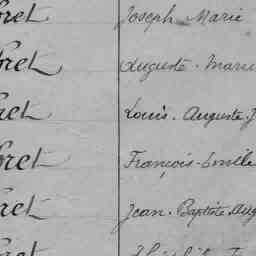 bret Joseph Marie
bret Auguste. Marie
bret Louis. Auguste. J
bret François. Emile
bret Jean. Baptiste. Aug